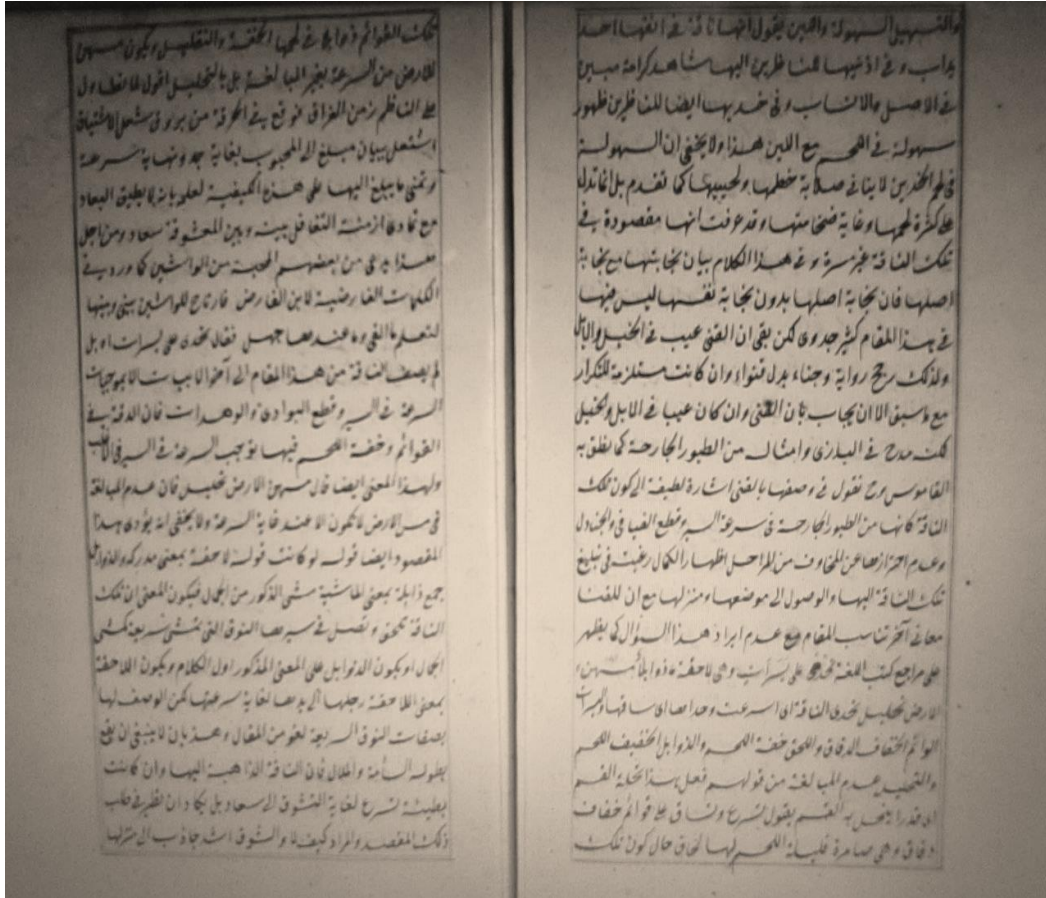 والتسهيل السهولة واللين يقول انها ناقة في انفها احد
يداب وفي اذنيها للناظرين اليها شاهد كرامة مبين
في الاصل والانساب وفي خديها ايضا للناظرين ظهور
سهولة في اللحم مع اللين هذا ولا يخفى ان السهولة
في لحم الخدين لا ينافي صلابة خطمها ولحييها كما تقدم بل انما تدل
على كثرة لحمها وغاية ضخامتها وقد عرفت انها مقصودة في
تلك الناقة غير مرة وفي هذا الكلام بيان نجابتها مع نجابة
اصلها فان نجابة اصلها بدون نجابة نفسها ليس فيها
في هذا المقام كثير جدوى لكن بقى ان القنى عيب في الخيل والابل
ولذلك رجح رواية وجناء بدل قنواء وان كانت مستلزمة للتكرار
مع ما سبق الا ان يجاب بان القنى وان كان عيبا في الابل والخيل
لكنه مدح في البازى وامثاله من الطيور الجارحة كما نطق به
القاموس وح نقول في وصفها بالقنى اشارة لطيفة الى كون تلك
الناقة كانها من الطيور الجارحة في سرعة السير وقطع الفيافي والجنادل
وعدم احترازها عن المخاوف من المراحل اظهار الكمال رغبته في تبليغ
تلك الناقة اليها والوصول الى موضعها ومنزلها مع ان للقنا
معاني آخر تناسب المقام مع عدم ايراد هذا السؤال كما يظهر
على مراجع كتب اللغة تخدى على يسرات وهي لاحقة ذوابل مسهن
الارض تحليل تخدى الناقة اى اسرعت وحداها اى ساقها واليسرات
القوائم الخفاف الدقاق واللحق خفة اللحم والذوابل الخفيف اللحم
والتحليل عدم المبالغة من قولهم فعل هذا تحلة القسم
اى قدر ما يحل به القسم يقول تسرع وتساق على قوائم خفاف
دقاق وهي ضامرة قليلة اللحم لها لحاق حال كون تلك
تلك القوائم ذوابل في لحمها الخفة والتقليل ويكون مسهن
للارض من السرعة بغير المبالغة بل بالتحليل اقول لما تطاول
على الناظم زمن الفراق فوقع في الحرقة من يروى شعل الاشتياق
اشتعل ببيان مبلغ الى المحبوب بغاية جد ونهاية سرعة
وتمنى ما يبلغ اليها على هذه الكيفية لعلمه بانه لا يطيق البعاد
مع تمادى ازمنة التغافل بينه وبين المعشوقة سعاد ومن اجل
هذا يرعى من بعضهم المحبة من الواشين كما ورد في
الكلمات الفارضية لابن الفارض فارتاح للواشين بيني وبينها
لتعلم ما القى وما عندها جهل فقال تخدى على يسرات اه بل
لم يصف الناقة من هذا المقام الى آخر الابيات الا بموجبات
السرعة في السير وقطع البوادى والوهدات فان الدقة في
القوائم وخفة اللحم فيها يوجب السرعة في السير في الاغلب
ولهذا المعنى ايضا قال مسهن الارض تحليل فان عدم المبالغة
في مس الارض لا يكون الا عند غاية السرعة ولا يخفى انه يؤدى هذا
المقصود ايضا قوله لو كانت قوله لاحقة بمعنى مدركه والذوابل
جمع ذابلة بمعنى الماشية مشى الذكور من الجمال فيكون المعنى ان تلك
الناقة تلحق وتصل في سيرها النوق التى تمشى سريعة كمشى
الجمال او يكون الذوابل على المعنى المذكور اول الكلام ويكون اللاحقة
بمعنى اللاحقة رجلها الى يدها لغاية سرعتها لكن الوصف لها
بصفات النوق السريعة لغو من المقال وهذيان لا ينبغى ان يقع
بطوله السامة والملال فان الناقة الذاهبة اليها وان كانت
بطيئة تسرع لغاية التشوق الى سعاد بل يكاد ان تطير في طلب
ذلك المقصد والمراد كيف لا والشوق اشد جاذب الى منزلها